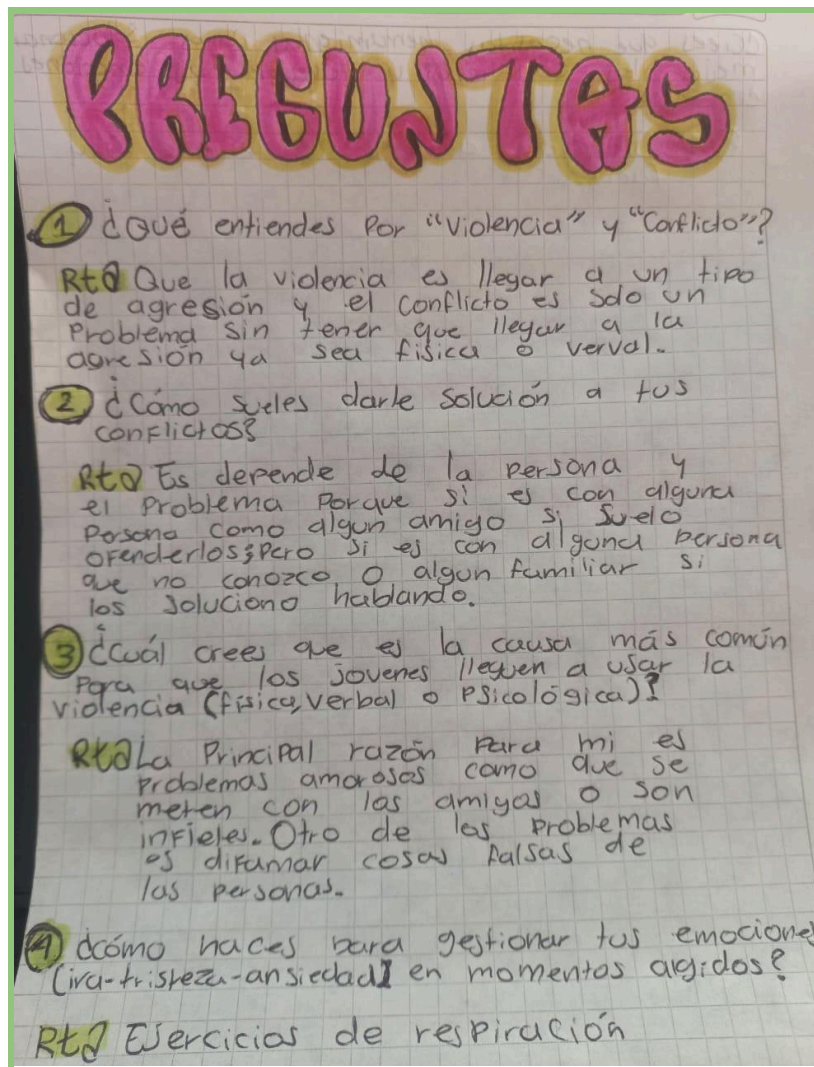 PREGUNTAS
1 ¿Qué entiendes Por "Violencia" y "Conflicto"?
Rta Que la violencia es llegar a un tipo
de agresión y el conflicto es solo un
Problema sin tener que llegar a la
agresión ya sea física o verval.
2 ¿Cómo sueles darle solución a tus
conflictos?
Rta Es depende de la persona y
el Problema Porque si es con alguna
Persona como algun amigo si suelo
ofenderlos; pero si es con alguna persona
que no conozco o algun familiar si
los soluciono hablando.
3 ¿Cuál crees que es la causa más común
Para que los jovenes lleguen a usar la
violencia (física, verbal o Psicológica)?
Rta La Principal razón para mi es
problemas amorosos como que se
meten con las amigas o son
infieles. Otro de los problemas
es difamar cosas falsas de
las personas.
4 ¿cómo haces para gestionar tus emociones
(ira-tristeza-ansiedad) en momentos algidos?
Rta Ejercicios de respiración